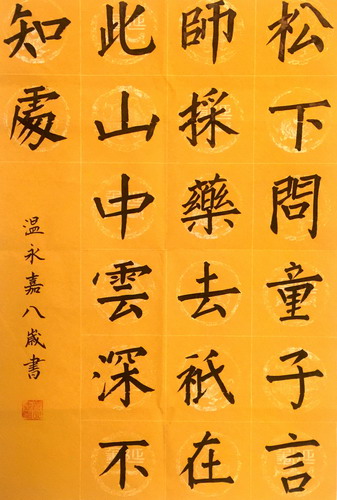 松下問童子言
師採藥去祇在
此山中雲深不
知處
温永嘉八歲書